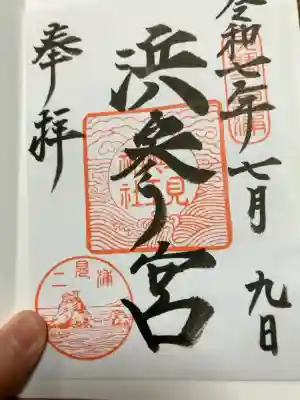 令和七年七月九日
浜参宮
奉拝
二見浦